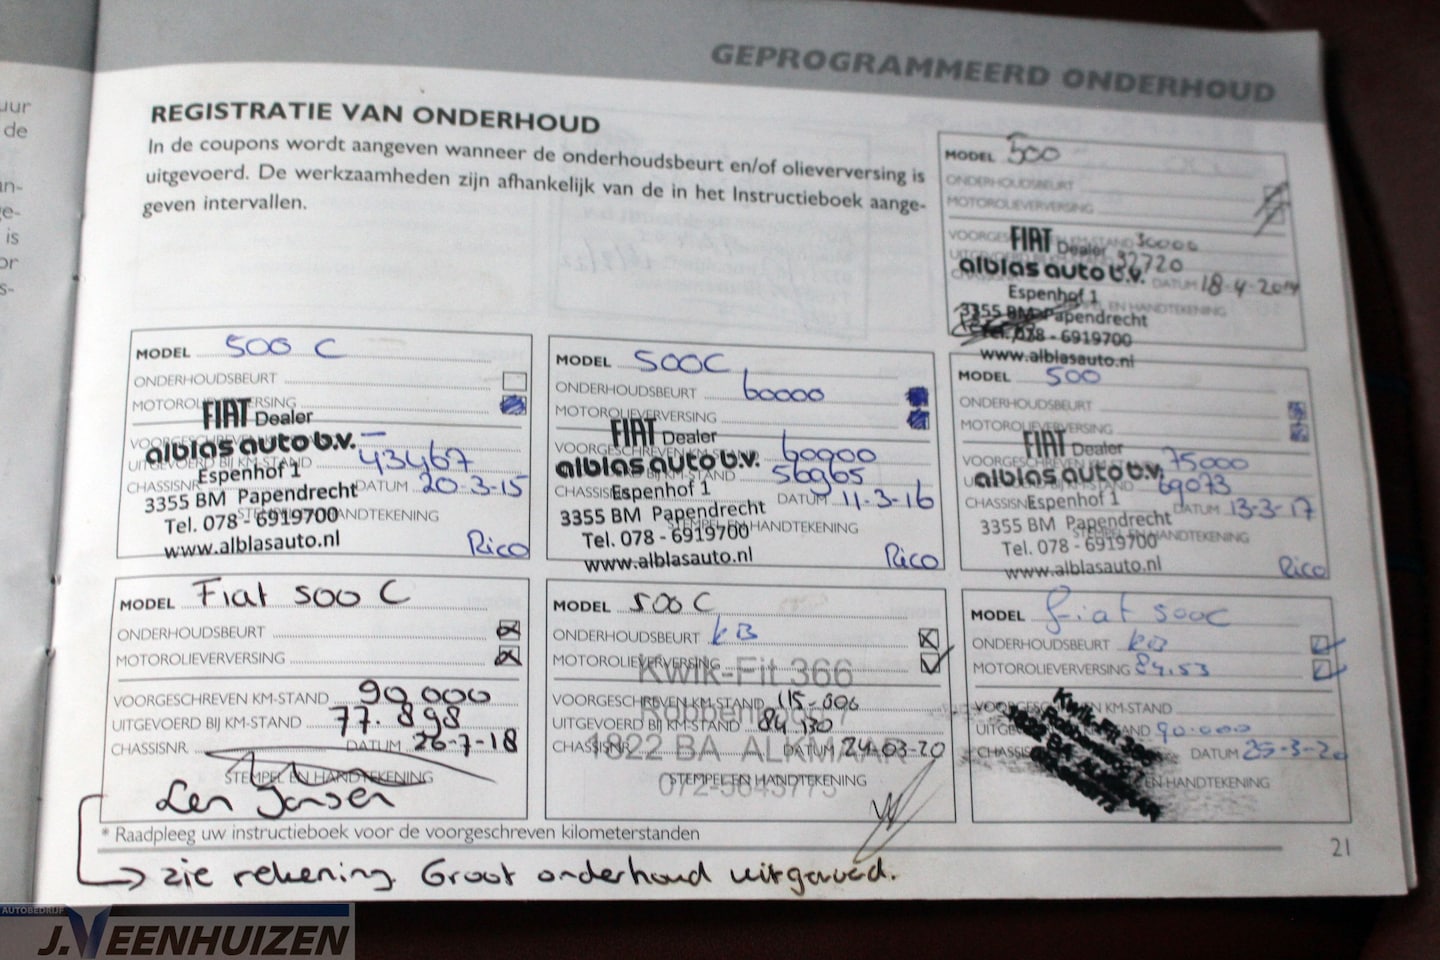 uur
de
an-
ge-
is
or
s-
GEPROGRAMMEERD ONDERHOUD
REGISTRATIE VAN ONDERHOUD
In de coupons wordt aangeven wanneer de onderhoudsbeurt en/of olieverversing is
uitgevoerd. De werkzaamheden zijn afhankelijk van de in het Instructieboek aange-
geven intervallen.
MODEL 500
ONDERHOUDSBEURT
MOTOROLIEVERVERSING
30000
FIAT Dealer
32720
alblas auto b.v.
DATUM 18-4-2014
Espenhof 1
3355 BM Papendrecht
Tel. 078 - 6919700
www.alblasauto.nl
MODEL 500 C
ONDERHOUDSBEURT
MOTOROLIEVERVERSING
FIAT Dealer
alblas auto b.v.
UITGEVOERD BIJ KM-STAND 43467
Espenhof 1
CHASSISNR. DATUM 20-3-15
3355 BM Papendrecht
STEMPEL EN HANDTEKENING
Tel. 078 - 6919700
www.alblasauto.nl
Rico
MODEL 500C
ONDERHOUDSBEURT 60000
MOTOROLIEVERVERSING
FIAT Dealer
VOORGESCHREVEN KM-STAND 60000
alblas auto b.v.
56965
CHASSISNR. DATUM 11-3-16
Espenhof 1
3355 BM Papendrecht
STEMPEL EN HANDTEKENING
Tel. 078 - 6919700
www.alblasauto.nl
Rico
MODEL 500
ONDERHOUDSBEURT
MOTOROLIEVERVERSING
FIAT Dealer
75000
alblas auto b.v.
69073
CHASSISNR. DATUM 13-3-17
Espenhof 1
3355 BM Papendrecht
STEMPEL EN HANDTEKENING
Tel. 078 - 6919700
www.alblasauto.nl
Rico
MODEL Fiat 500 C
ONDERHOUDSBEURT
MOTOROLIEVERVERSING
VOORGESCHREVEN KM-STAND 90.000
UITGEVOERD BIJ KM-STAND 77.898
CHASSISNR. DATUM 26-7-18
STEMPEL EN HANDTEKENING
Len Jansen
MODEL 500 C
ONDERHOUDSBEURT kB
MOTOROLIEVERVERSING
Kwik-Fit 366
VOORGESCHREVEN KM-STAND
UITGEVOERD BIJ KM-STAND 84.130
CHASSISNR. DATUM 24-03-20
1822 BA ALKMAAR
STEMPEL EN HANDTEKENING
MODEL Fiat 500C
ONDERHOUDSBEURT kB
MOTOROLIEVERVERSING 84.53
VOORGESCHREVEN KM-STAND
90.000
DATUM 25-3-20
EN HANDTEKENING
Kwik-Fit 366
* Raadpleeg uw instructieboek voor de voorgeschreven kilometerstanden
21
zie rekening. Groot onderhoud uitgevoerd.
AUTOBEDRIJF
J. VEENHUIZEN